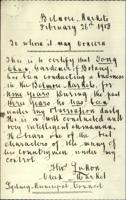 Belmore Markets
February 26th 1903
To whom it may concern
This is to certify that Dong
Gardener of Botany,
has been conducting a business
in the Belmore Markets, for
years during the past
three years he has been
under my observation daily
He is a well conducted and
very intelligent Chinaman.
He bears one of the best
characters of the many of
his countrymen under my
control.
Thos
Clerk Markets
Sydney Municipal Council